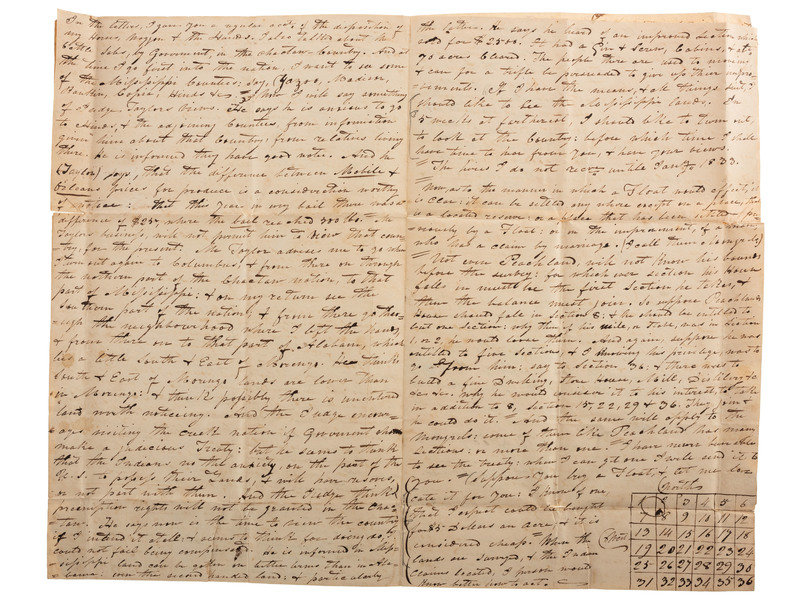 In the letter, I gave you a regular acct. of the disposition of
my Horses, Waggon & the Hands. I also talked about the
by Goverment in the Choctaw Country. And at
the time I go first into the nation, I want to see some
of the Mississippi Counties, say, (Yazoo, Madison,
Rankin, Copia, Hinds &c. Now I will say something
of Judge Taylors views. He says he is anxious to go
to Hinds, & the adjoining Counties, from information
given him about that Country from relatives living
there. He is informed they have good note. And he
(Taylor) says, that the difference between Mobile &
Orleans prices for produce is a consideration worthy
of notice: that this year in very bail there was a
difference of where the bail reached 500 lbs. Mr
Taylors business will not permit him to view that coun=
try; for the present. Mr Taylor advises me to go when
I turn out again to Columbus, & from there on through
the northern part of the Choctaw nation, to that
part of Mississippi; & on my return see the
Southern part of the nation, & from there go thro=
ugh the neighbourhood where I left the hands,
& from there on to that part of Alabama, which
lies a little South & East of Marengo. He thinks
South & East of Marengo lands are lower than
in Marengo: & think possibly there is unentered
land worth noticeing. And the Judge encour=
ages visiting the creek nation if Goverment shou
make a judicious Treaty: but he seems to think
that the Indians see the anxiety on the part of the
U. S. to possess their Lands, & with poor reasons,
or not part with them. And the Judge thinks
preemption rights will not be granted in the Choc=
taw. He says now is the time to view the country
if I intend it at all: & seems to think for doing so, it
could not fail being He is informed in Mis=
sissippi land can be gotten on better terms than in Ala=
bama. even the second handed land: & particularly
the latter. He says he heard of an improved section which
sold for $2500. It had a Gin & Screw, Cabins, & at
90 acres Cleared. The people there are used to moving
& can for a trifle be persuaded to give up their improve=
ments. If I have the means, & all things suit, I
should like to see the Mississippi lands. In
5 weeks at fartherest, I should like to turn out,
to look at the Country: before which time I shall
have time to hear from you, & have your views.
The prices I do not until Jany 1833.
Now as to the manner in which a Float would operate, it
is clear; it can be settled any where except on a place, that
is a located reserve: or a place that has been settled pre=
viously by a Float: or on the improvement, & a
who has a claim by marriage. (I call them Mongrels)
Not even Peachland, will not know his bounds
before the survey: for which ever section his House
falls in must be the first Section he takes, &
then the balance must join. So suppose Peachlands
House should fall in Section 8; & he should be entitled to
but one section: why then if his mile, a state, was in section
1. or 2. it would cover them. And again, suppose he was
entitled to five Sections, & I knowing his privilege, was to
go from him: say to Section 36: & there was to
build a fine Dwelling, Store House, Mill, Distillery &c
&c &c. why he would conceive it to his interest, to take
in addition to 8, Section 15, 22, 29 & 36. They join &
he could do it. And the same will apply to the
Mongrels: some of them like Peachland has many
Sections: or more than one. I have never been able
to see the treaty: when I can get one I will send it to
you. Suppose you buy a Float, & let me lo=
cate it for you: I know of one,
that I expect could be bought
for 85 Dollars an acre, & it is
considered cheap. When the
lands are Surveyed & the Indian
claims located, a person would
know better how to act.
North
3 4 5 6
7 8 9 10 11 12
13 14 15 16 17 18
(West)
19 20 21 22 23 24
25 26 27 28 29 30
31 32 33 34 35 36